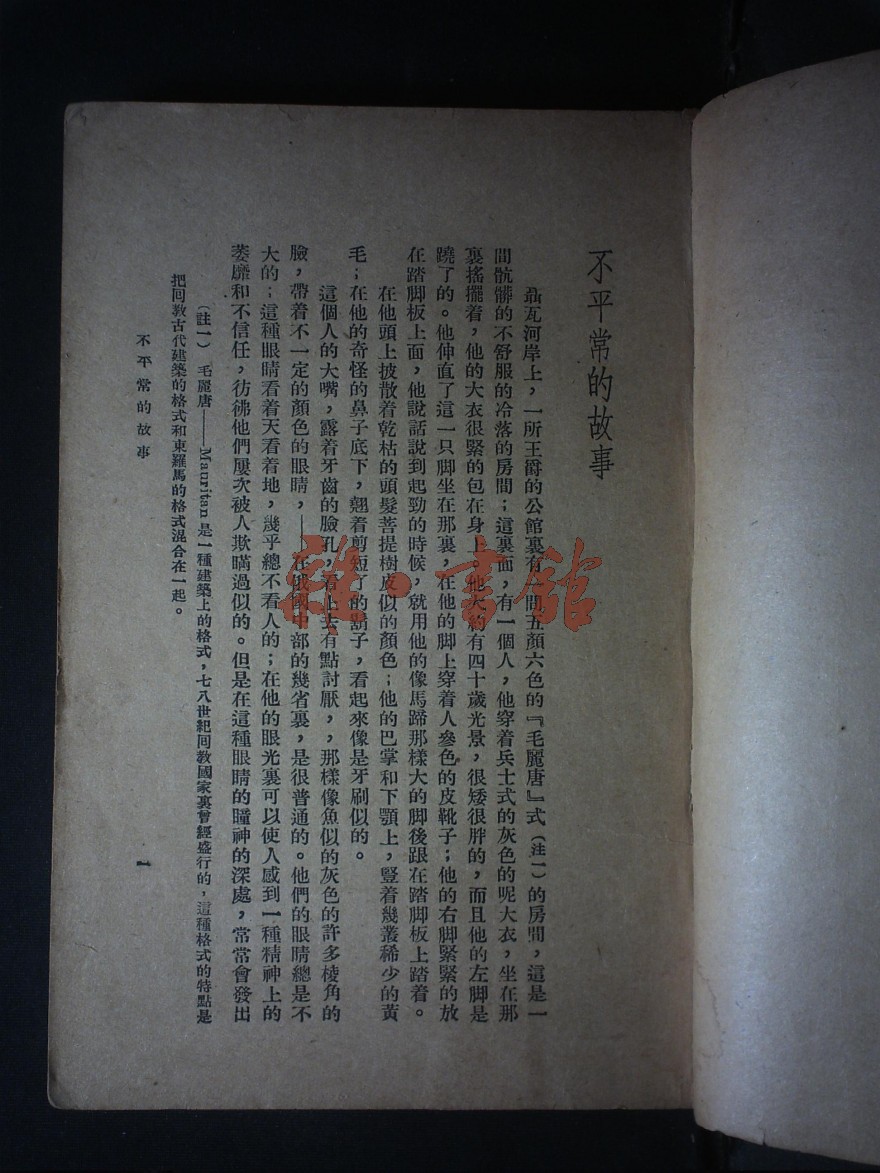 不平常的故事
聶瓦河岸上，一所王爵的公館裏有一間五顏六色的『毛麗唐』式（註一）的房間，這是一
間骯髒的不舒服的冷落的房間；這裏面，有一個人，他穿着兵士式的灰色的呢大衣，坐在那
裏搖擺着，他的大衣很緊的包在身上，他大約有四十歲光景，很矮很胖的，而且他的左脚是
蹺了的。他伸直了這一只脚坐在那裏，在他的脚上穿着人參色的皮靴子；他的右脚緊緊的放
在踏脚板上面，他說話說到起勁的時候，就用他的像馬蹄那樣大的脚後跟在踏脚板上踏着。
在他頭上披散着乾枯的頭髮菩提樹皮似的顏色；他的巴掌和下顎上，豎着幾叢稀少的黃
毛；在他的奇怪的鼻子底下，翹着剪短了的鬍子，看起來像是牙刷似的。
這個人的大嘴，露着牙齒的臉孔，看上去有點討厭，，那樣像魚似的灰色的許多棱角的
臉，帶着不一定的顏色的眼睛，——在俄國中部的幾省裏，是很普通的。他們的眼睛總是不
大的；這種眼睛看着天看着地，幾乎總不看人的；在他的眼光裏可以使人感到一種精神上的
萎靡和不信任，彷彿他們屢次被人欺瞞過似的。但是在這種眼睛的瞳神的深處，常常會發出
（註一）　毛麗唐——Mauritan是一種建築上的格式，七八世紀囘敎國家裏曾經盛行的，這種格式的特點是
把囘敎古代建築的格式和東羅馬的格式混合在一起。
不平常的故事
一
雜·書館